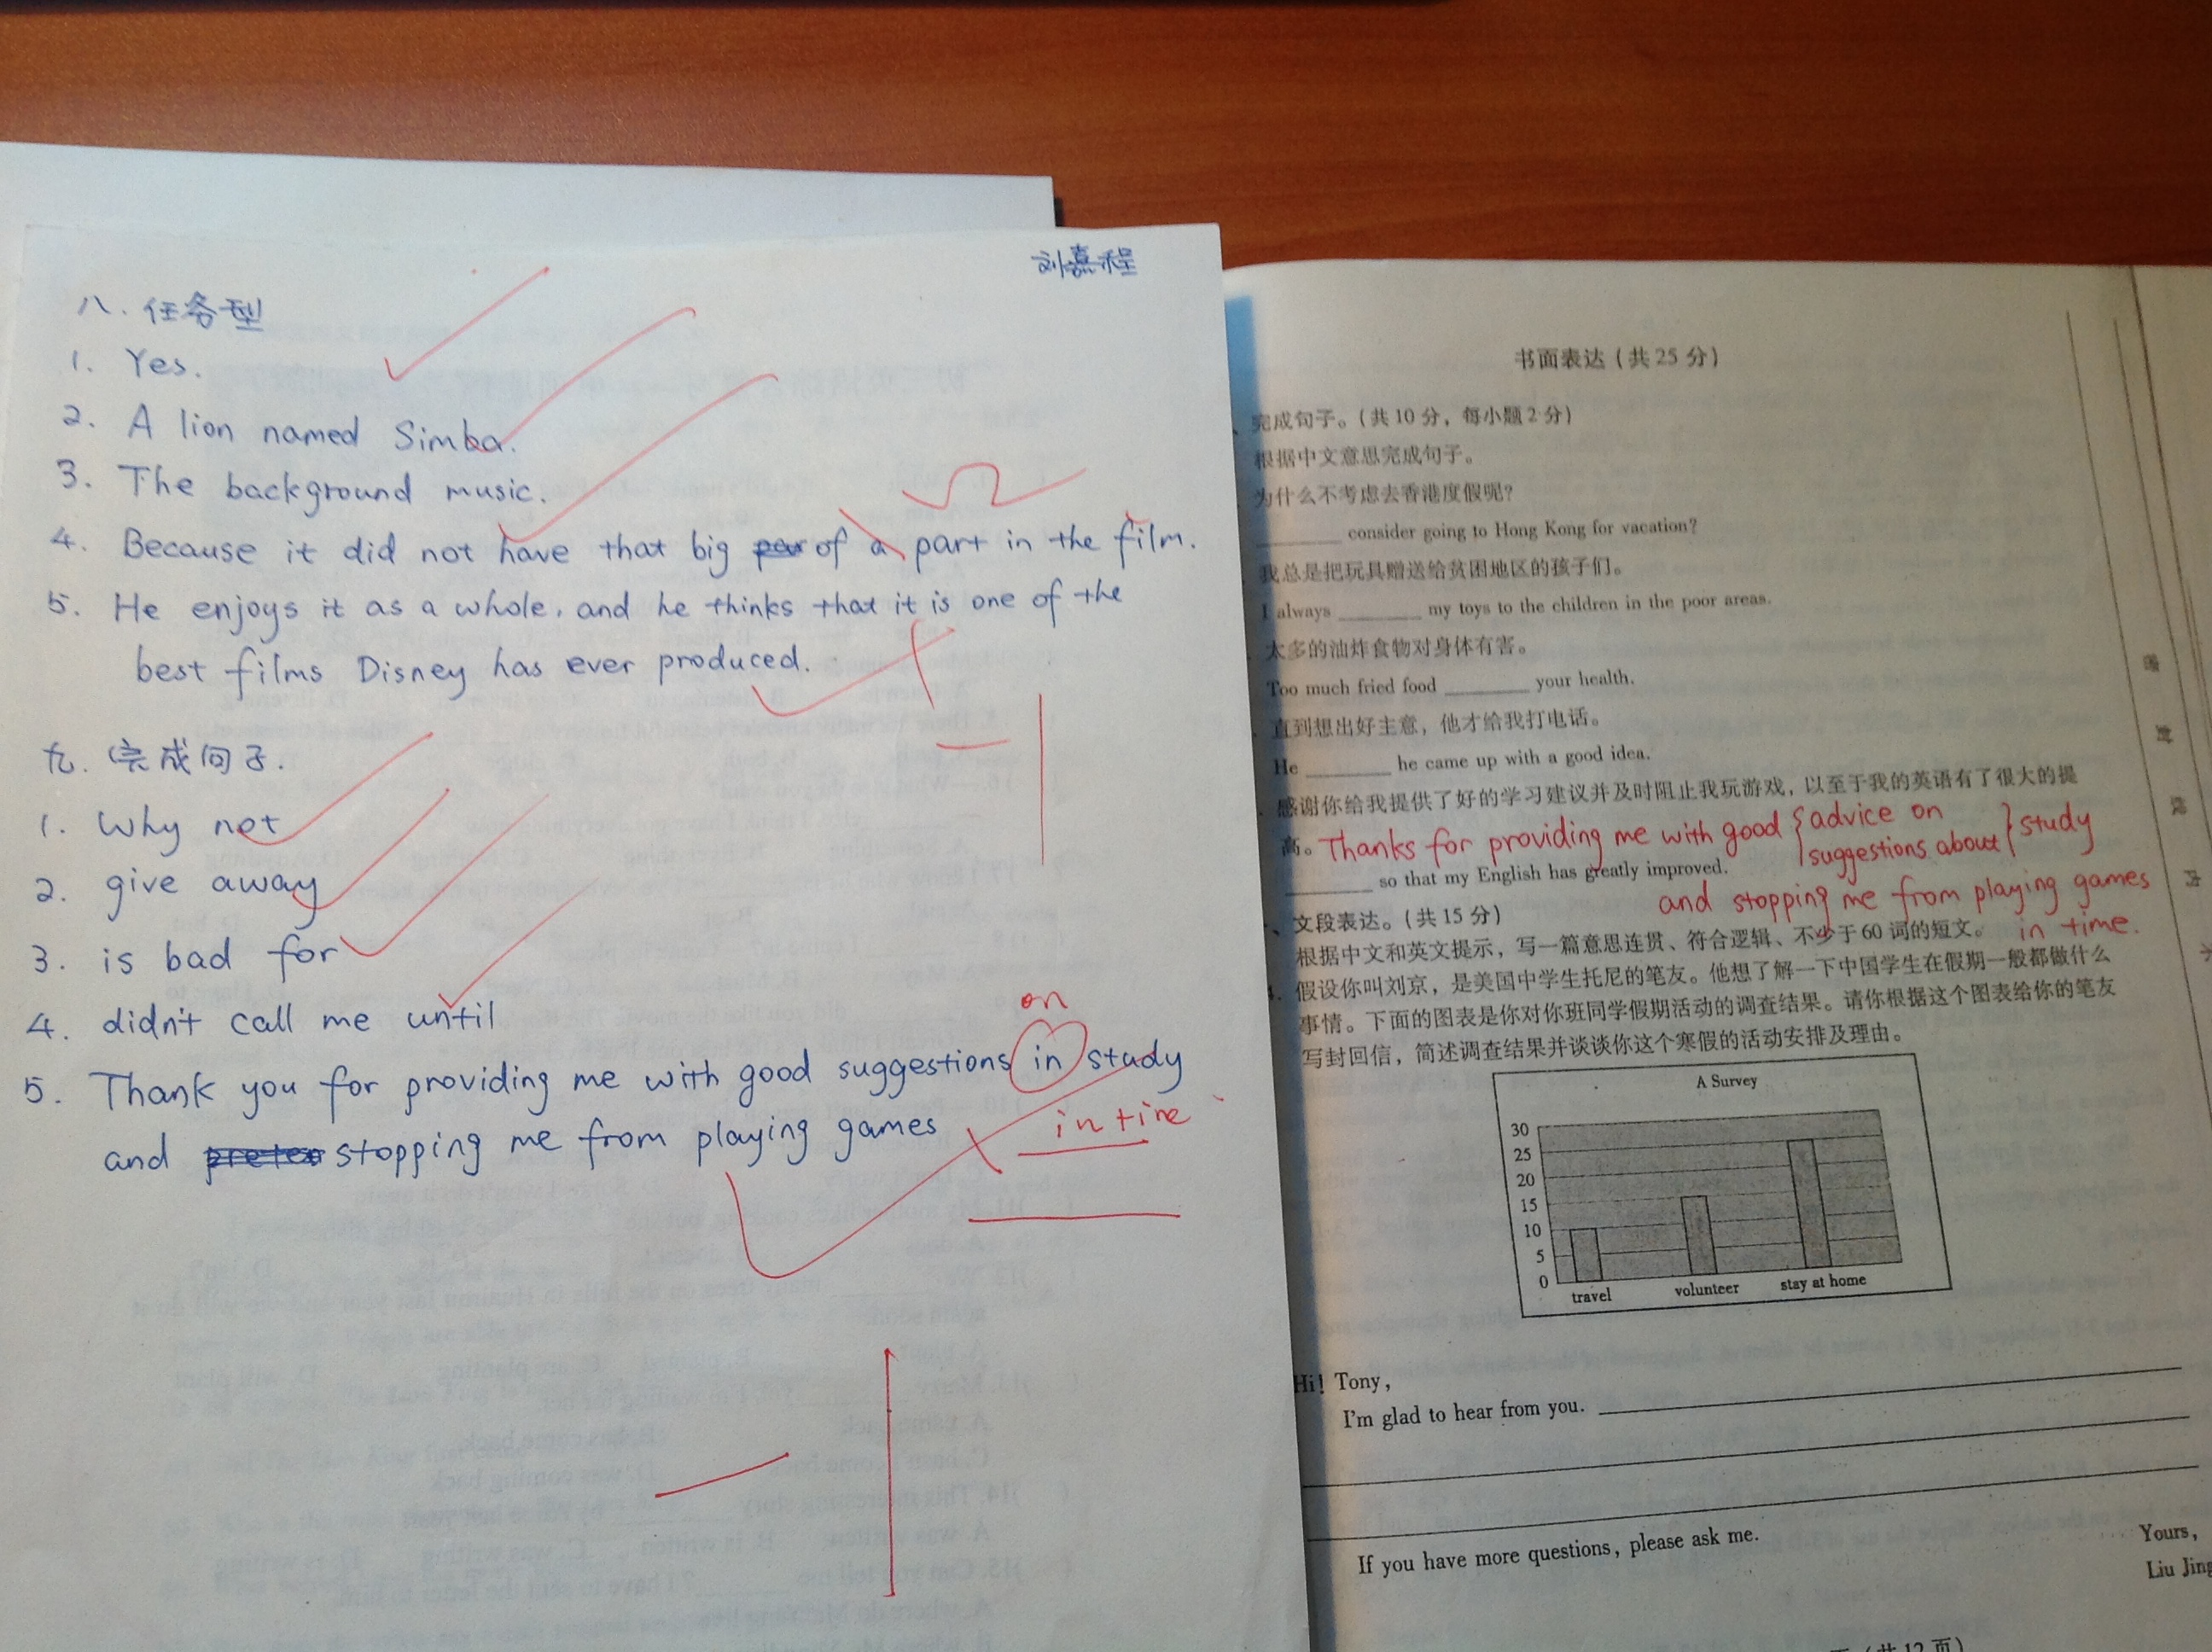 刘嘉程
八. 任务型
1. Yes.
2. A lion named Simba.
3. The background music.
4. Because it did not have that big of a part in the film.
5. He enjoys it as a whole, and he thinks that it is one of the
best films Disney has ever produced.
-1
九. 完成句子.
1. Why not
2. give away
3. is bad for
4. didn't call me until
on
5. Thank you for providing me with good suggestions in study
and stopping me from playing games
in time
-1
书面表达(共25分)
完成句子。(共10分,每小题2分)
根据中文意思完成句子。
为什么不考虑去香港度假呢?
________ consider going to Hong Kong for vacation?
我总是把玩具赠送给贫困地区的孩子们。
I always ________ my toys to the children in the poor areas.
太多的油炸食物对身体有害。
Too much fried food ________ your health.
直到想出好主意,他才给我打电话。
He ________ he came up with a good idea.
感谢你给我提供了好的学习建议并及时阻止我玩游戏,以至于我的英语有了很大的提
高。Thanks for providing me with good { advice on
suggestions about } study
________ so that my English has greatly improved.
and stopping me from playing games
in time.
、文段表达。(共15分)
根据中文和英文提示,写一篇意思连贯、符合逻辑、不少于60词的短文。
假设你叫刘京,是美国中学生托尼的笔友。他想了解一下中国学生在假期一般都做什么
事情。下面的图表是你对你班同学假期活动的调查结果。请你根据这个图表给你的笔友
写封回信,简述调查结果并谈谈你这个寒假的活动安排及理由。
A Survey
30
25
20
15
10
5
0
travel volunteer stay at home
Hi! Tony,
I'm glad to hear from you.
If you have more questions, please ask me.
Yours,
Liu Jing
页(共12页)